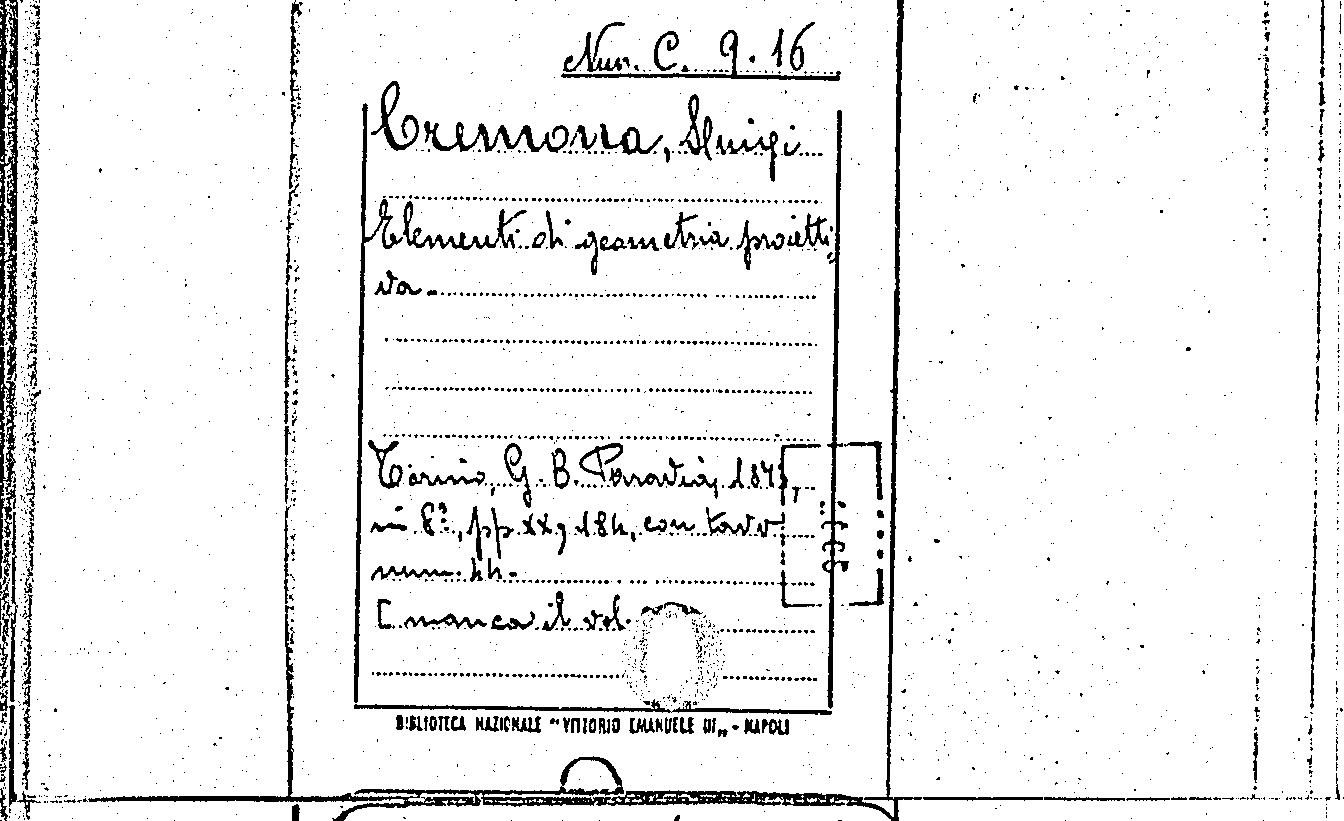 Nun. C. 9. 16
Cremona, Luigi
Elementi di geometria proietti=
va.
Torino, G. B. Paravia, 1873,
in 8º, pp. XX, 184, con tavv.
num.
[manca il vol.
BIBLIOTECA NAZIONALE "VITTORIO EMANUELE III„ - NAPOLI